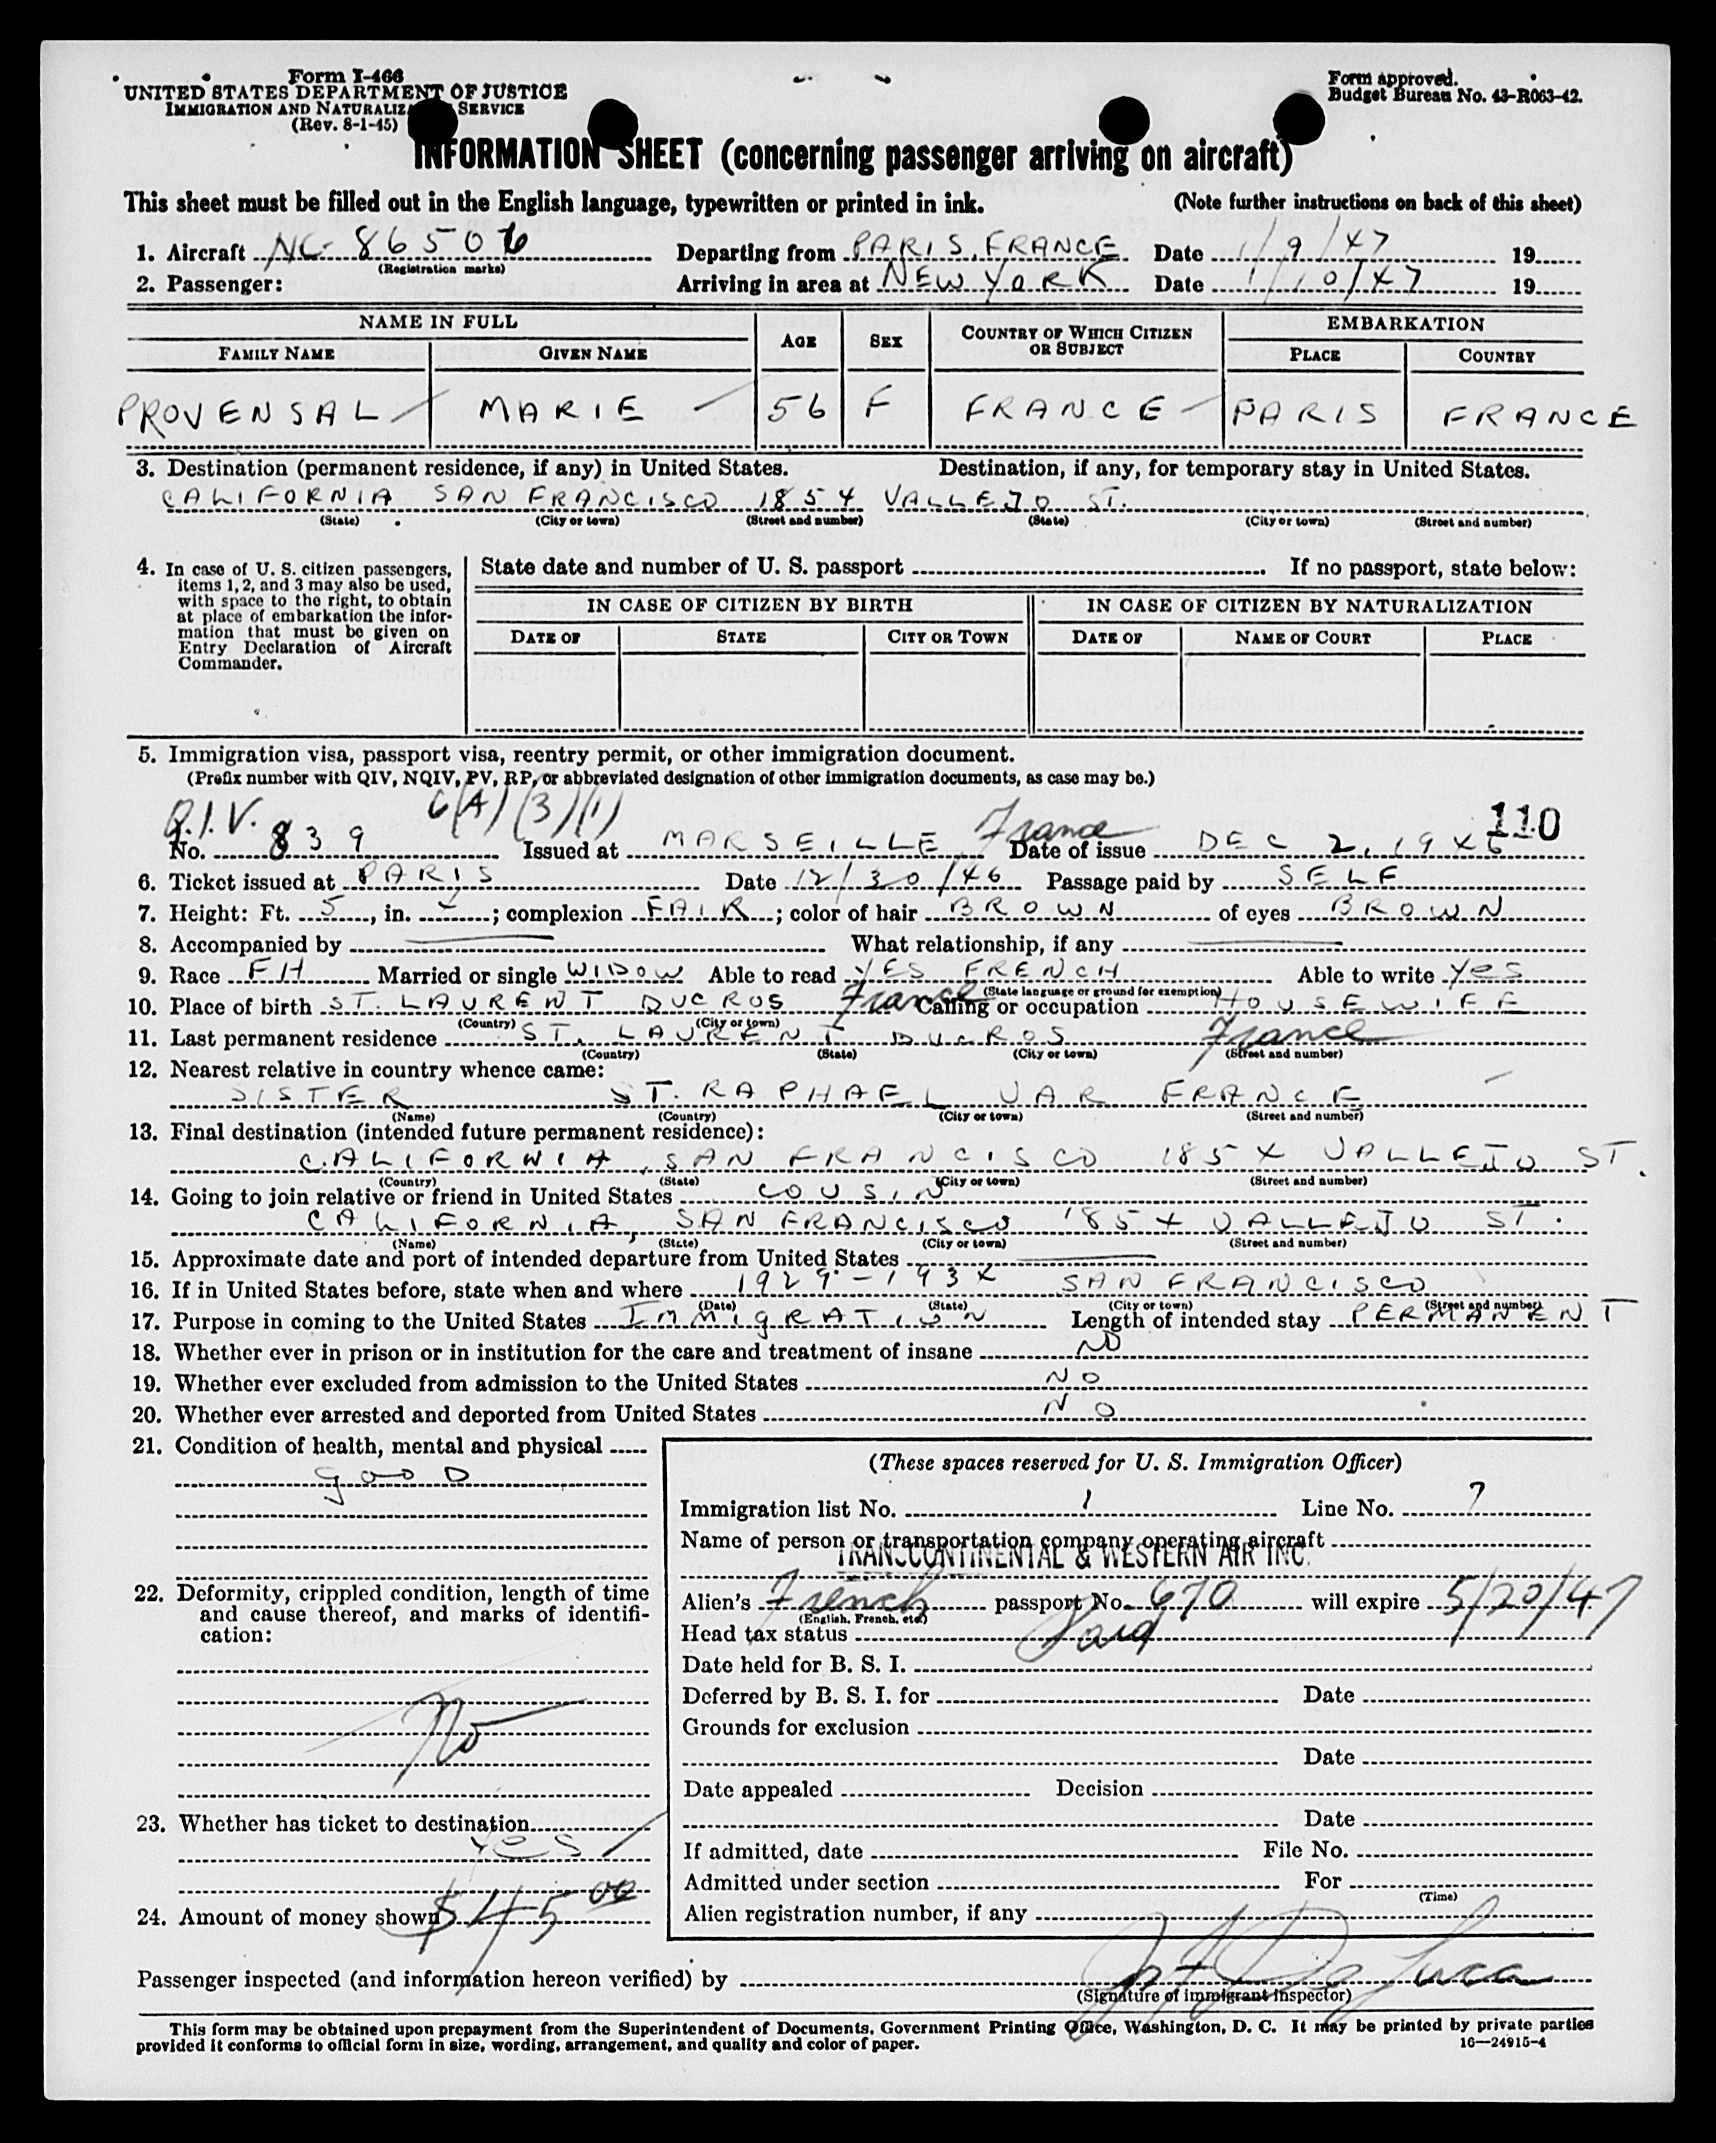 Form I-466
UNITED STATES DEPARTMENT OF JUSTICE
IMMIGRATION AND NATURALIZATION SERVICE
(Rev. 8-1-45)
Form approved.
Budget Bureau No. 43-R063-42.
INFORMATION SHEET (concerning passenger arriving on aircraft)
This sheet must be filled out in the English language, typewritten or printed in ink. (Note further instructions on back of this sheet)
1. Aircraft NC 86506 Departing from PARIS, FRANCE Date 1/9/47 19
(Registration marks)
2. Passenger: Arriving in area at NEW YORK Date 1/10/47 19
NAME IN FULL AGE SEX COUNTRY OF WHICH CITIZEN OR SUBJECT EMBARKATION
FAMILY NAME GIVEN NAME PLACE COUNTRY
PROVENSAL MARIE 56 F FRANCE PARIS FRANCE
3. Destination (permanent residence, if any) in United States. Destination, if any, for temporary stay in United States.
CALIFORNIA SAN FRANCISCO 1854 VALLEJO ST.
(State) (City or town) (Street and number) (State) (City or town) (Street and number)
4. In case of U. S. citizen passengers, items 1, 2, and 3 may also be used, with space to the right, to obtain at place of embarkation the information that must be given on Entry Declaration of Aircraft Commander.
State date and number of U. S. passport If no passport, state below:
IN CASE OF CITIZEN BY BIRTH IN CASE OF CITIZEN BY NATURALIZATION
DATE OF STATE CITY OR TOWN DATE OF NAME OF COURT PLACE
5. Immigration visa, passport visa, reentry permit, or other immigration document.
(Prefix number with QIV, NQIV, PV, RP, or abbreviated designation of other immigration documents, as case may be.)
Q.I.V. 6(A)(3)(1) 110
No. 839 Issued at MARSEILLE France Date of issue DEC 2, 1946
6. Ticket issued at PARIS Date 12/30/46 Passage paid by SELF
7. Height: Ft. 5, in. ; complexion FAIR; color of hair BROWN of eyes BROWN
8. Accompanied by — What relationship, if any —
9. Race FH Married or single WIDOW Able to read YES FRENCH Able to write Yes
(State language or ground for exemption)
10. Place of birth ST. LAURENT DUCROS France Calling or occupation HOUSEWIFE
(Country) (City or town)
11. Last permanent residence ST. LAURENT DUCROS France
(Country) (State) (City or town) (Street and number)
12. Nearest relative in country whence came:
SISTER ST. RAPHAEL VAR FRANCE
(Name) (Country) (City or town) (Street and number)
13. Final destination (intended future permanent residence):
CALIFORNIA, SAN FRANCISCO 1854 VALLEJO ST.
(Country) (State) (City or town) (Street and number)
14. Going to join relative or friend in United States COUSIN
CALIFORNIA, SAN FRANCISCO 1854 VALLEJO ST.
(Name) (State) (City or town) (Street and number)
15. Approximate date and port of intended departure from United States —
16. If in United States before, state when and where 1929-1934 SAN FRANCISCO
(Date) (State) (City or town) (Street and number)
17. Purpose in coming to the United States IMMIgRATION Length of intended stay PERMANENT
18. Whether ever in prison or in institution for the care and treatment of insane NO
19. Whether ever excluded from admission to the United States NO
20. Whether ever arrested and deported from United States NO
21. Condition of health, mental and physical
gooD
22. Deformity, crippled condition, length of time and cause thereof, and marks of identification:
No
23. Whether has ticket to destination
Yes
24. Amount of money shown $45 00
(These spaces reserved for U. S. Immigration Officer)
Immigration list No. 1 Line No. 7
Name of person or transportation company operating aircraft
TRANSCONTINENTAL & WESTERN AIR INC.
Alien's French passport No. 670 will expire 5/20/47
(English, French, etc.)
Head tax status Paid
Date held for B. S. I.
Deferred by B. S. I. for Date
Grounds for exclusion
Date
Date appealed Decision
Date
If admitted, date File No.
Admitted under section For
(Time)
Alien registration number, if any
Passenger inspected (and information hereon verified) by De Luca
(Signature of immigrant inspector)
This form may be obtained upon prepayment from the Superintendent of Documents, Government Printing Office, Washington, D. C. It may be printed by private parties
provided it conforms to official form in size, wording, arrangement, and quality and color of paper. 16—24915-4